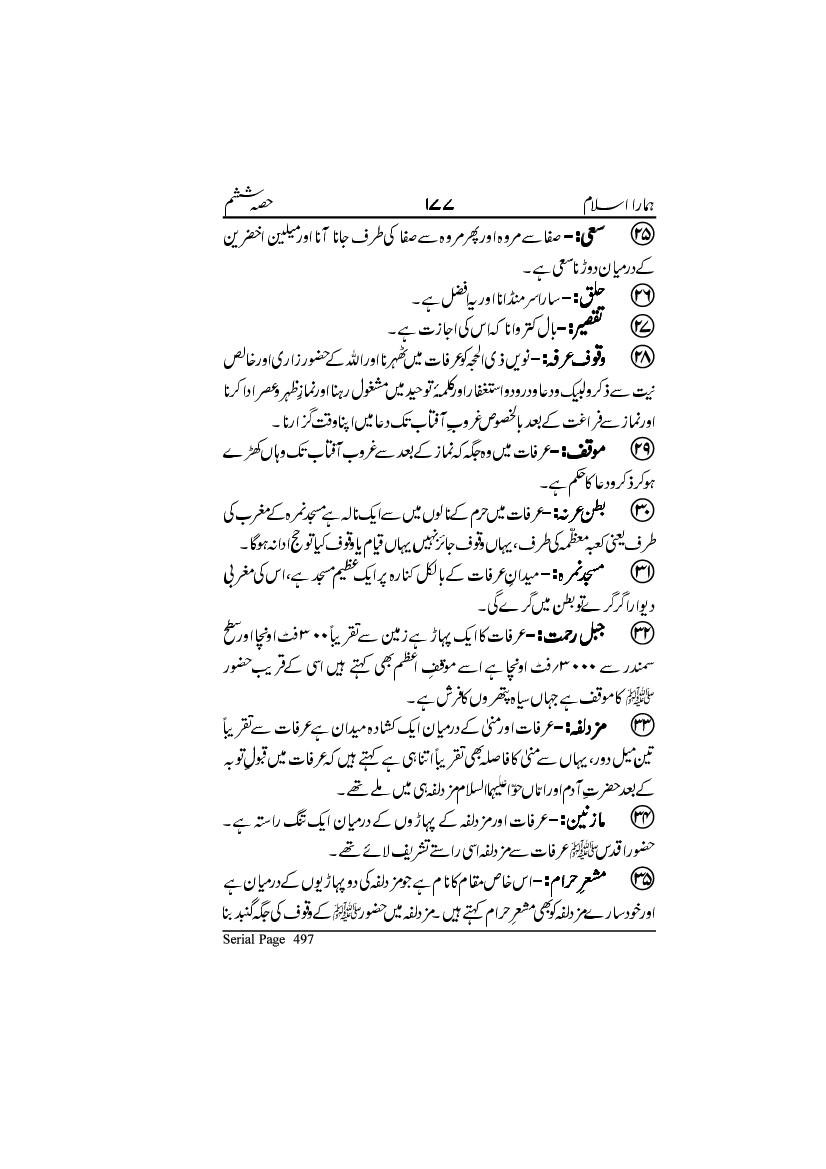 ہمارا اسلام ۱۷۷ حصہ ششم
۲۵ سعی:– صفا سے مروہ اور پھر مروہ سے صفا کی طرف جانا آنا اور میلین اخضرین
کے درمیان دوڑنا سعی ہے۔
۲۶ حلق:– سارا سر منڈانا اور یہ افضل ہے۔
۲۷ تقصیر:– بال کتروانا کہ اس کی اجازت ہے۔
۲۸ وقوف عرفہ:– نویں ذی الحجہ کو عرفات میں ٹھہرنا اور اللہ کے حضور زاری اور خالص
نیت سے ذکر و لبیک و دعا و درود و استغفار اور کلمۂ توحید میں مشغول رہنا اور نمازِ ظہر و عصر ادا کرنا
اور نماز سے فراغت کے بعد بالخصوص غروبِ آفتاب تک دعا میں اپنا وقت گزارنا۔
۲۹ موقف:– عرفات میں وہ جگہ کہ نماز کے بعد سے غروب آفتاب تک وہاں کھڑے
ہو کر ذکر و دعا کا حکم ہے۔
۳۰ بطن عرنہ:– عرفات میں حرم کے نالوں میں سے ایک نالہ ہے مسجد نمرہ کے مغرب کی
طرف یعنی کعبہ معظّمہ کی طرف، یہاں وقوف جائز نہیں یہاں قیام یا وقوف کیا تو حج ادا نہ ہوگا۔
۳۱ مسجد نمرہ:– میدانِ عرفات کے بالکل کنارہ پر ایک عظیم مسجد ہے، اس کی مغربی
دیوار اگر گرے تو بطن میں گرے گی۔
۳۲ جبل رحمت:– عرفات کا ایک پہاڑ ہے زمین سے تقریباً ۳۰۰ فٹ اونچا اور سطح
سمندر سے ۳۰۰۰؍ فٹ اونچا ہے اسے موقفِ اعظم بھی کہتے ہیں اسی کے قریب حضور
ﷺ کا موقف ہے جہاں سیاہ پتھروں کا فرش ہے۔
۳۳ مزدلفہ:– عرفات اور منیٰ کے درمیان ایک کشادہ میدان ہے عرفات سے تقریباً
تین میل دور، یہاں سے منیٰ کا فاصلہ بھی تقریباً اتنا ہی ہے کہتے ہیں کہ عرفات میں قبولِ توبہ
کے بعد حضرتِ آدم اور امّاں حوّا علیہما السلام مزدلفہ ہی میں ملے تھے۔
۳۴ مازنین:– عرفات اور مزدلفہ کے پہاڑوں کے درمیان ایک تنگ راستہ ہے۔
حضور اقدس ﷺ عرفات سے مزدلفہ اسی راستے تشریف لائے تھے۔
۳۵ مشعر حرام:– اس خاص مقام کا نام ہے جو مزدلفہ کی دو پہاڑیوں کے درمیان ہے
اور خود سارے مزدلفہ کو بھی مشعرِ حرام کہتے ہیں۔ مزدلفہ میں حضور ﷺ کے وقوف کی جگہ گنبد بنا
Serial Page 497